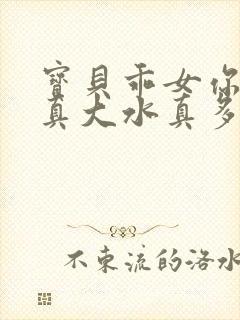 寶貝乖女你
真大水真多
不束流的洛水